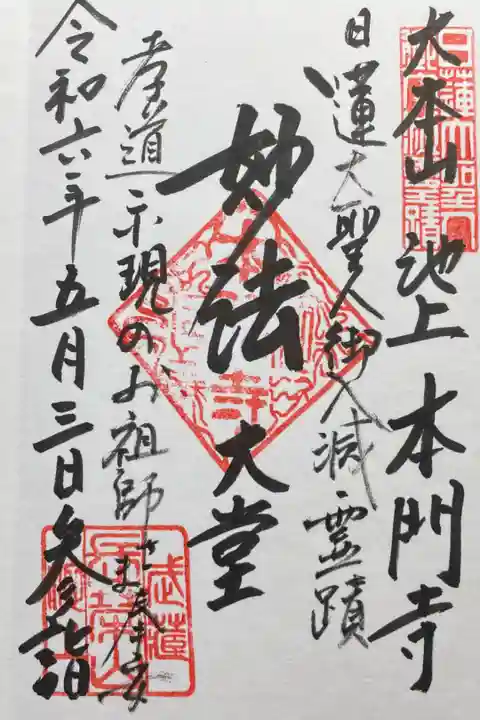 大本山 池上 本門寺
日蓮大聖人御入滅霊蹟
妙法
大堂
孝道示現のお祖師さま奉安
令和六年五月三日 参詣